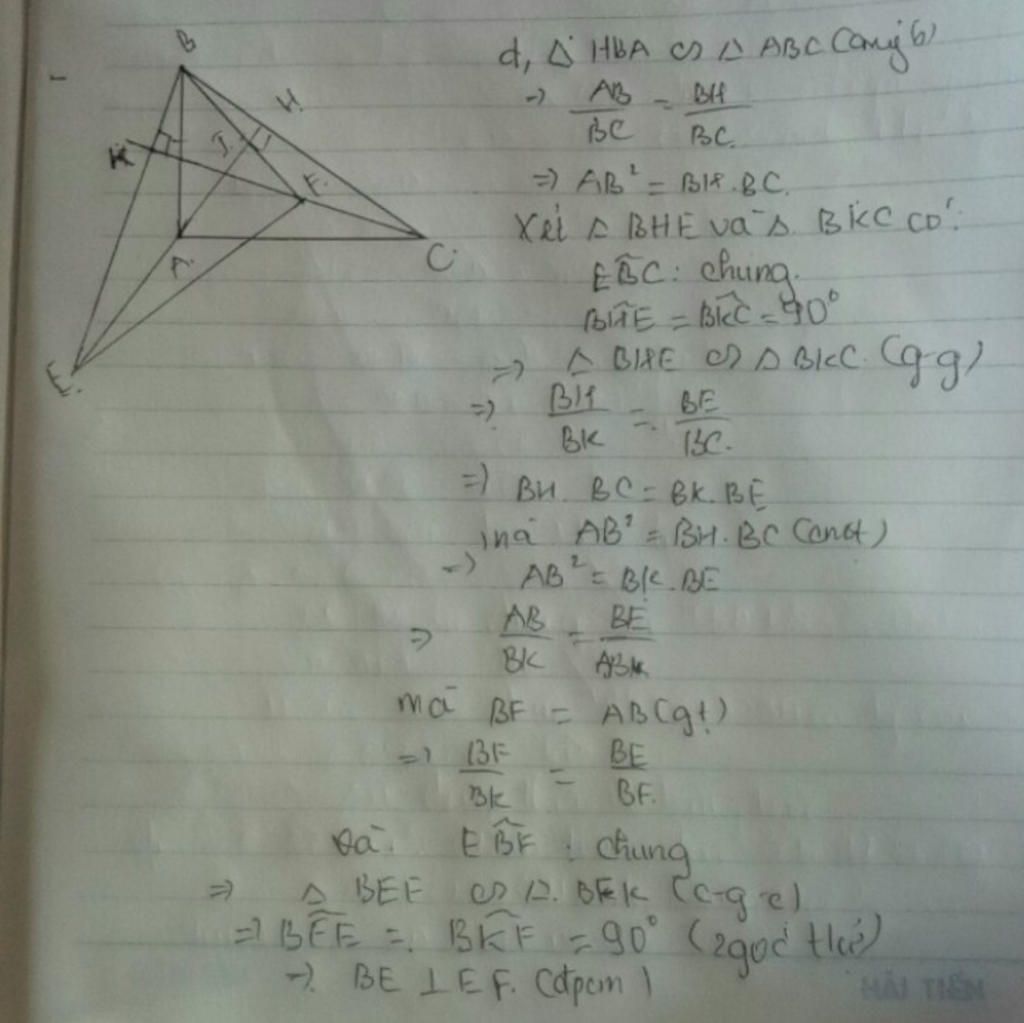 B
H.
K
I
F.
A.
C.
E.
d, △ HBA ∽ △ ABC (câu b)
→ AB/BC = BH/BC.
⇒ AB² = BH.BC.
Xét △ BHE và △ BKC có:
EB̂C: chung.
BĤE = BK̂C = 90°
⇒ △ BHE ∽ △ BKC. (g-g)
⇒ BH/BK = BE/BC.
⇒ BH. BC = BK. BE
mà AB² = BH. BC (cmt)
⇒ AB² = BK. BE
⇒ AB/BK = BE/AB
mà BF = AB (gt)
⇒ BF/BK = BE/BF.
và EB̂F : chung
⇒ △ BEF ∽ △. BFK (c-g-c)
⇒ BF̂E = BK̂F = 90° (2 góc t/ứ)
⇒ BE ⊥ EF. (đpcm)
HẢI TIẾN